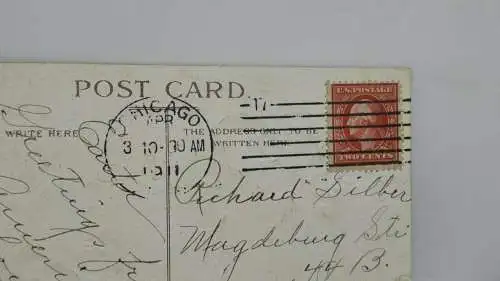 POST CARD.
U.S. POSTAGE
TWO CENTS
CHICAGO
APR
3 10-30 AM
1911
17
WRITE HERE
THE ADDRESS ONLY TO BE
WRITTEN HERE.
Greetings
Richard Silber
Magdeburg Str
44 B.